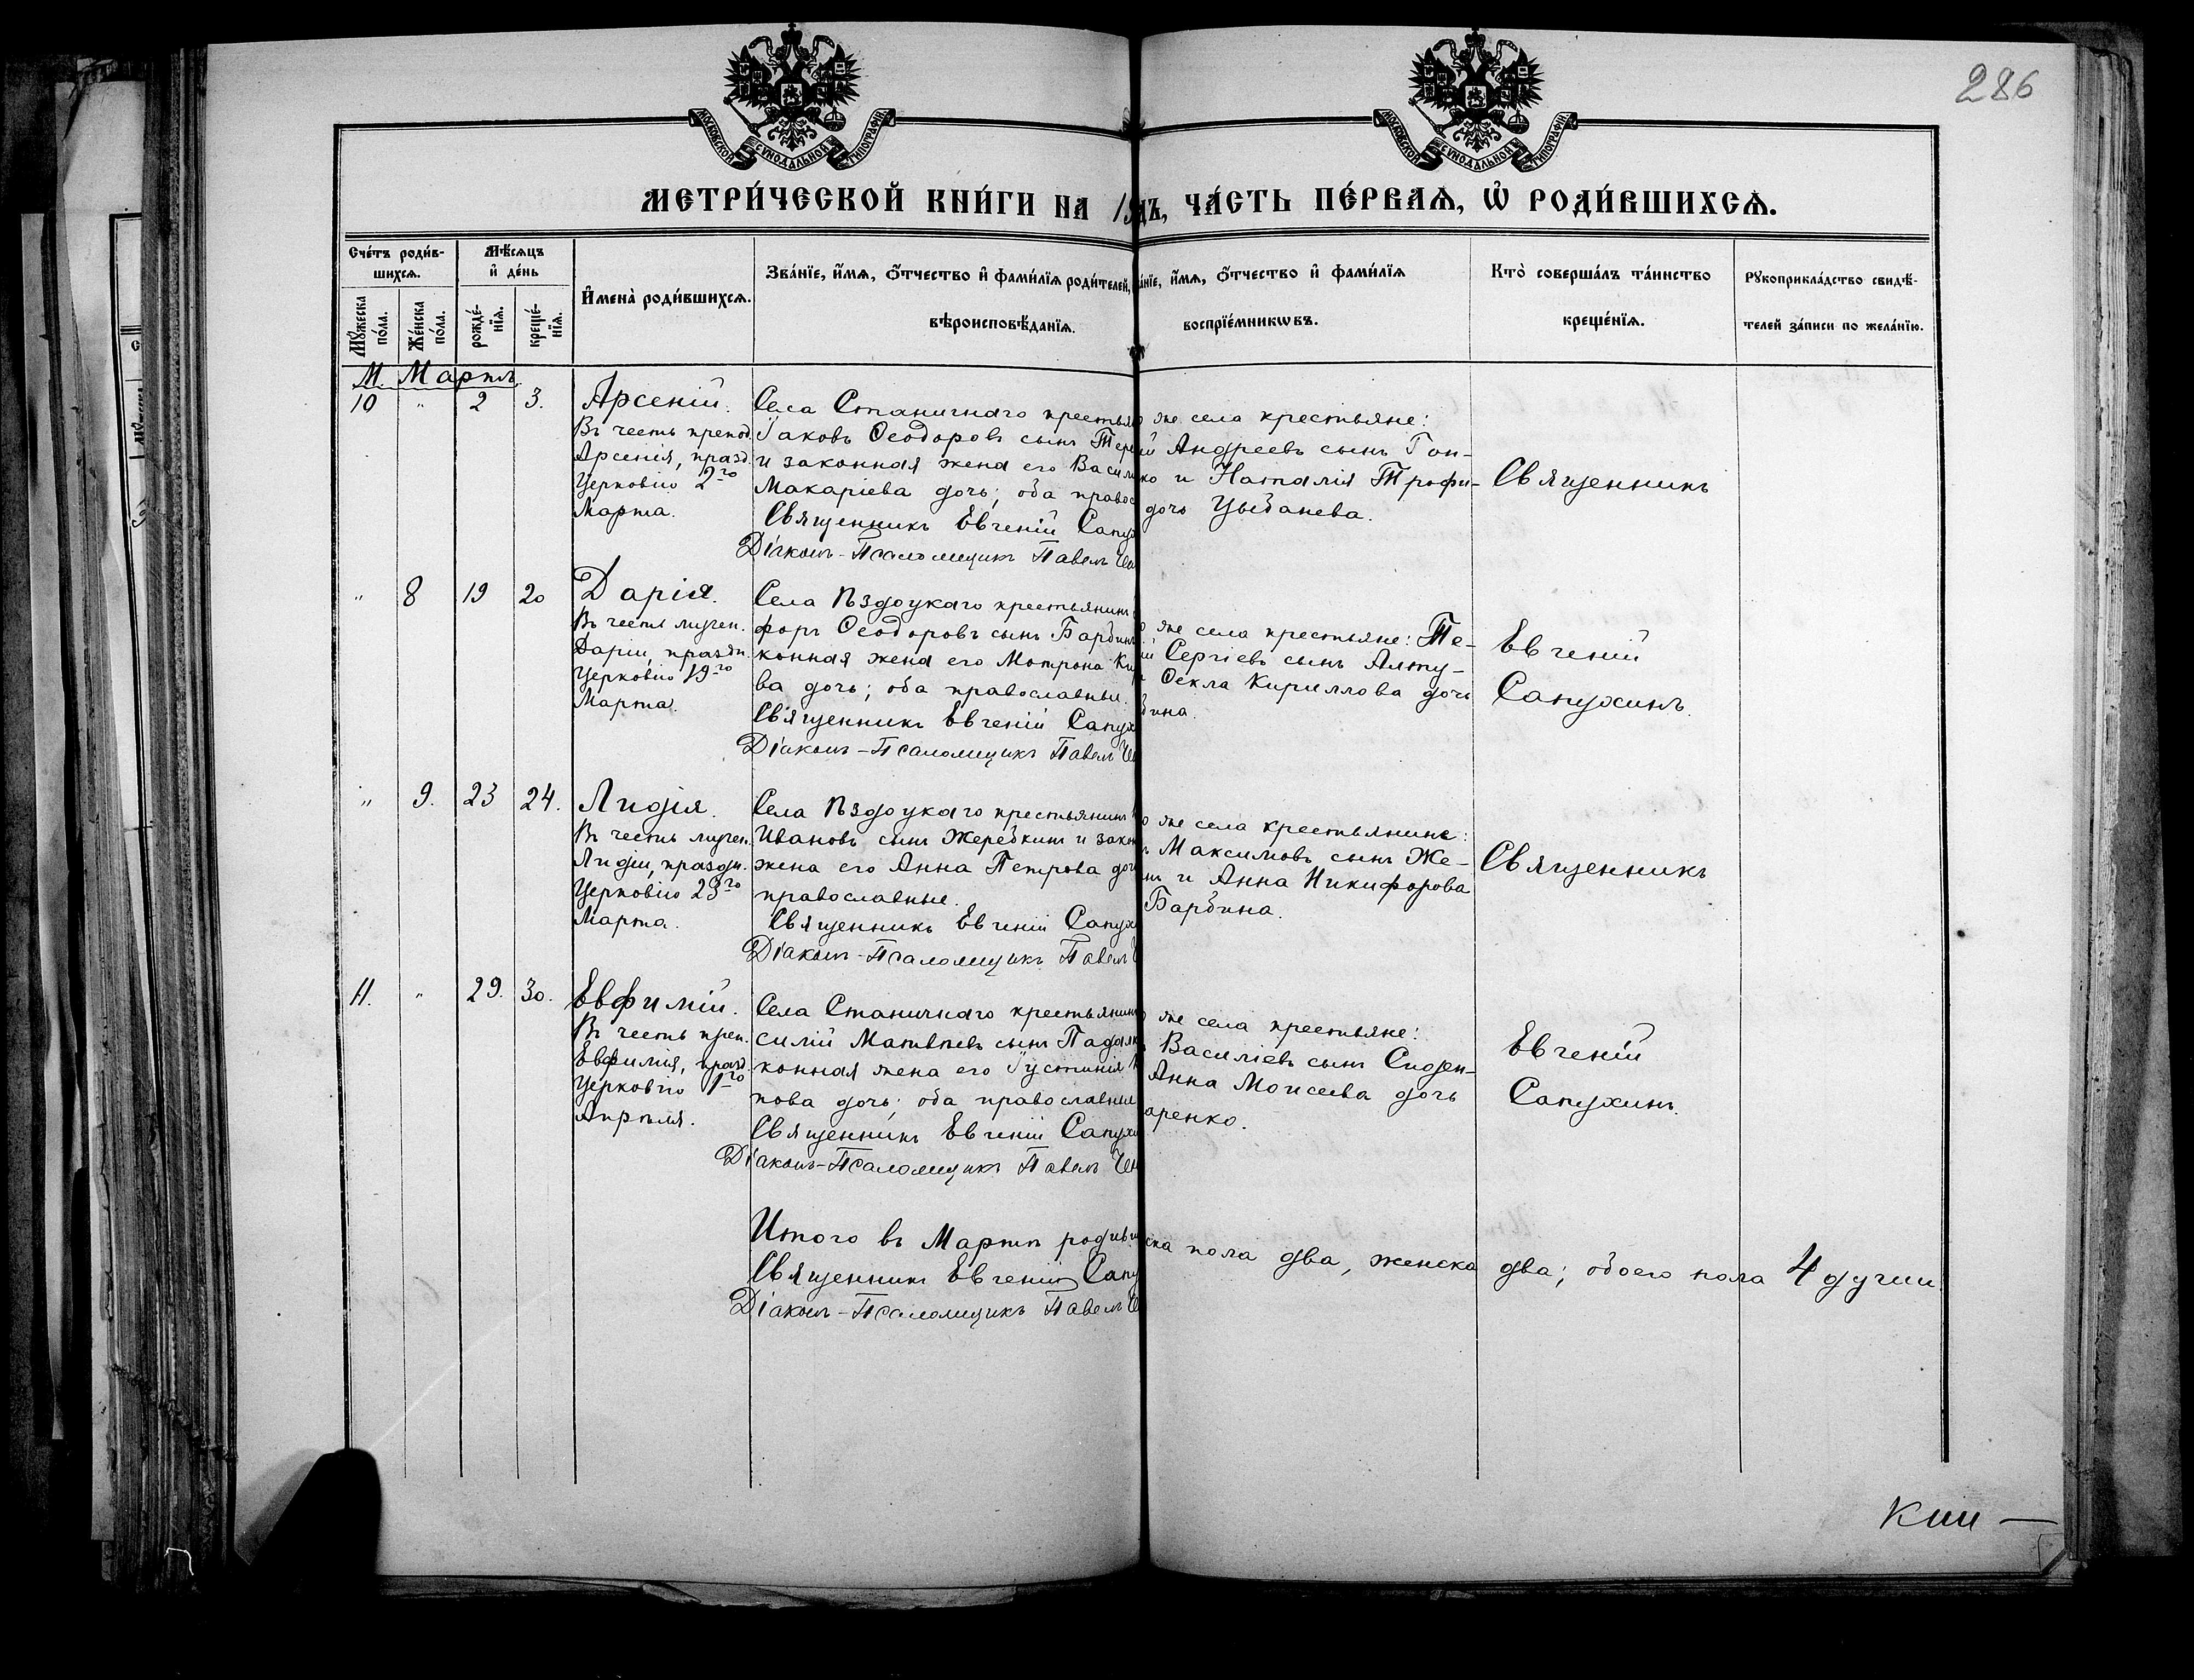 286
МОСКОВСКОЙ СѴНОДАЛЬНОЙ ТИПОГРАФІИ
МОСКОВСКОЙ СѴНОДАЛЬНОЙ ТИПОГРАФІИ
МЕТРИ́ЧЕСКОЙ КНИ́ГИ НА 19
дъ, ЧА́СТЬ ПЕ́РВАѦ, Ѡ҆ РОДИ́ВШИХСѦ.
Сче́тъ роди́в-
шихсѧ.
Мꙋ́жеска по́ла.
Же́нска по́ла.
Мѣ́сѧцъ
и҆ де́нь
рожде́-
нїѧ.
креще́-
нїѧ.
И҆мена̀ роди́вшихсѧ.
Зва́нїе, и҆́мѧ, ѻ҆́тчество и҆ фами́лїѧ роди́телей,
вѣроисповѣ́данїѧ.
а́нїе, и҆́мѧ, ѻ҆́тчество и҆ фами́лїѧ
воспрїе́мникѡвъ.
Кто̀ соверша́лъ та́инство
креще́нїѧ.
Рꙋкоприкла́дство свидѣ́-
телей за́писи по жела́нїю.
М. Мартъ.
10 " 2 3.
Арсеній.
Въ честь препод.
Арсенія, празд.
Церковію 2го
Марта.
Села Станичнаго крестья
Іаковъ Ѳеодоровъ сынъ Тере
и законная жена его Васили
Макаріева дочь; оба правос
Священникъ Евгеній Сапух
Діаконъ-Псаломщикъ Павелъ
о же села крестьяне:
ій Андреевъ сынъ Гон-
ко и Наталія Трофи-
дочь Цыбанева.
Священникъ
" 8 19 20
Дарія.
Въ честь мучен.
Даріи, праздн.
Церковію 19го
Марта.
Села Ѣздоцкаго крестьянинъ
форъ Ѳеодоровъ сынъ Барбин
конная жена его Мотрона Ки
ва дочь; оба православные.
Священникъ Евгеній Сапух
Діаконъ-Псаломщикъ Павелъ
о же села крестьяне: Те-
ій Сергіевъ сынъ Алту-
Ѳекла Кириллова дочь
бина.
Евгеній
Сапухинъ.
" 9. 23 24.
Лидія.
Въ честь мучен.
Лидіи, праздн.
Церковію 23го
Марта.
Села Ѣздоцкаго крестьянинъ
Ивановъ сынъ Жеребкинъ и закон
жена его Анна Петрова доч
православные.
Священникъ Евгеній Сапух
Діаконъ-Псаломщикъ Павелъ
о же села крестьянине:
Максимовъ сынъ Же-
нъ и Анна Никифорова
Барбина.
Священникъ
11. " 29. 30.
Евфимій.
Въ честь преп.
Евфимія, празд.
Церковію 1го
Апрѣля.
Села Станичнаго крестьянинъ
силій Матвѣевъ сынъ Падалк
конная жена его Іустинія
пова дочь; оба православные
Священникъ Евгеній Сапухи
Діаконъ-Псаломщикъ Павелъ
о же села крестьяне:
Василіевъ сынъ Сиден-
Анна Моисеева дочь
аренко.
Евгеній
Сапухинъ.
Итого въ Мартѣ родивш
ска пола два, женска два; обоего пола 4 души.
Священникъ Евгеній Сапу
Діаконъ-Псаломщикъ Павелъ